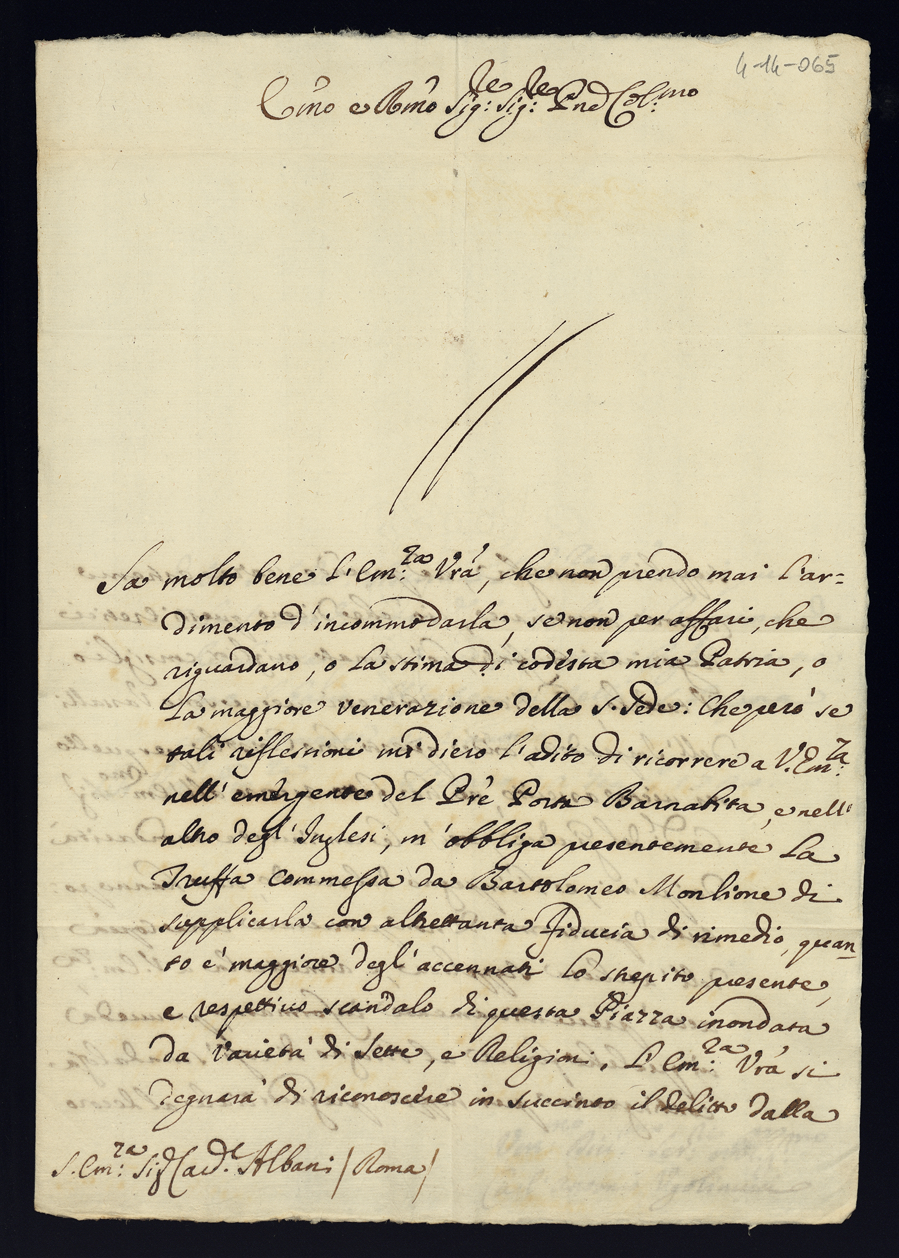 4-14-065
Emo e Rmo Sig:re Sig:re Pne Col:mo
Sa molto bene l'Em:za Vrã, che non prendo mai l'ar=
dimento d'incommodarla, se non per affari, che
riguardano, o la stima di codesta mia Patria, o
la maggiore venerazione della S. Sede: Che però se
tali riflessioni mi diero l'adito di ricorrere a V. Em:za
nell'emergente del Prẽ Porta Barnabita, e nell'
altro degl'Inglesi, m'obbliga presentemente la
Truffa commessa da Bartolomeo Monlione di
supplicarla con altrettanta fiducia di rimedio, quan=
to e' maggiore degl'accennati lo strepito presente,
e respettivo scandalo di questa Piazza inondata
da Varietà di Sette, e Religioni. L'Em:za Vrã si
degnarà di riconoscere in succinto il delitto dalla
S. Em:za Sig Card:le Albani / Roma /